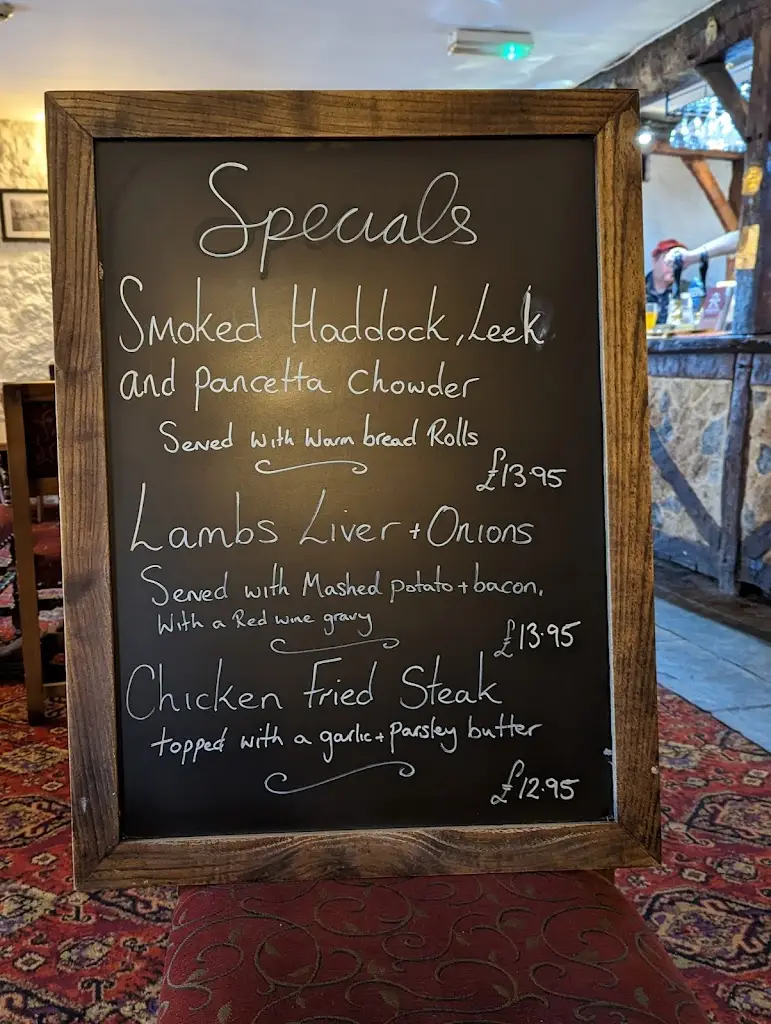 Specials
Smoked Haddock, Leek
and pancetta chowder
Served with warm bread Rolls
£13.95
Lambs Liver + Onions
Served with Mashed potato + bacon.
With a Red wine gravy
£13.95
Chicken Fried Steak
topped with a garlic + Parsley butter
£12.95